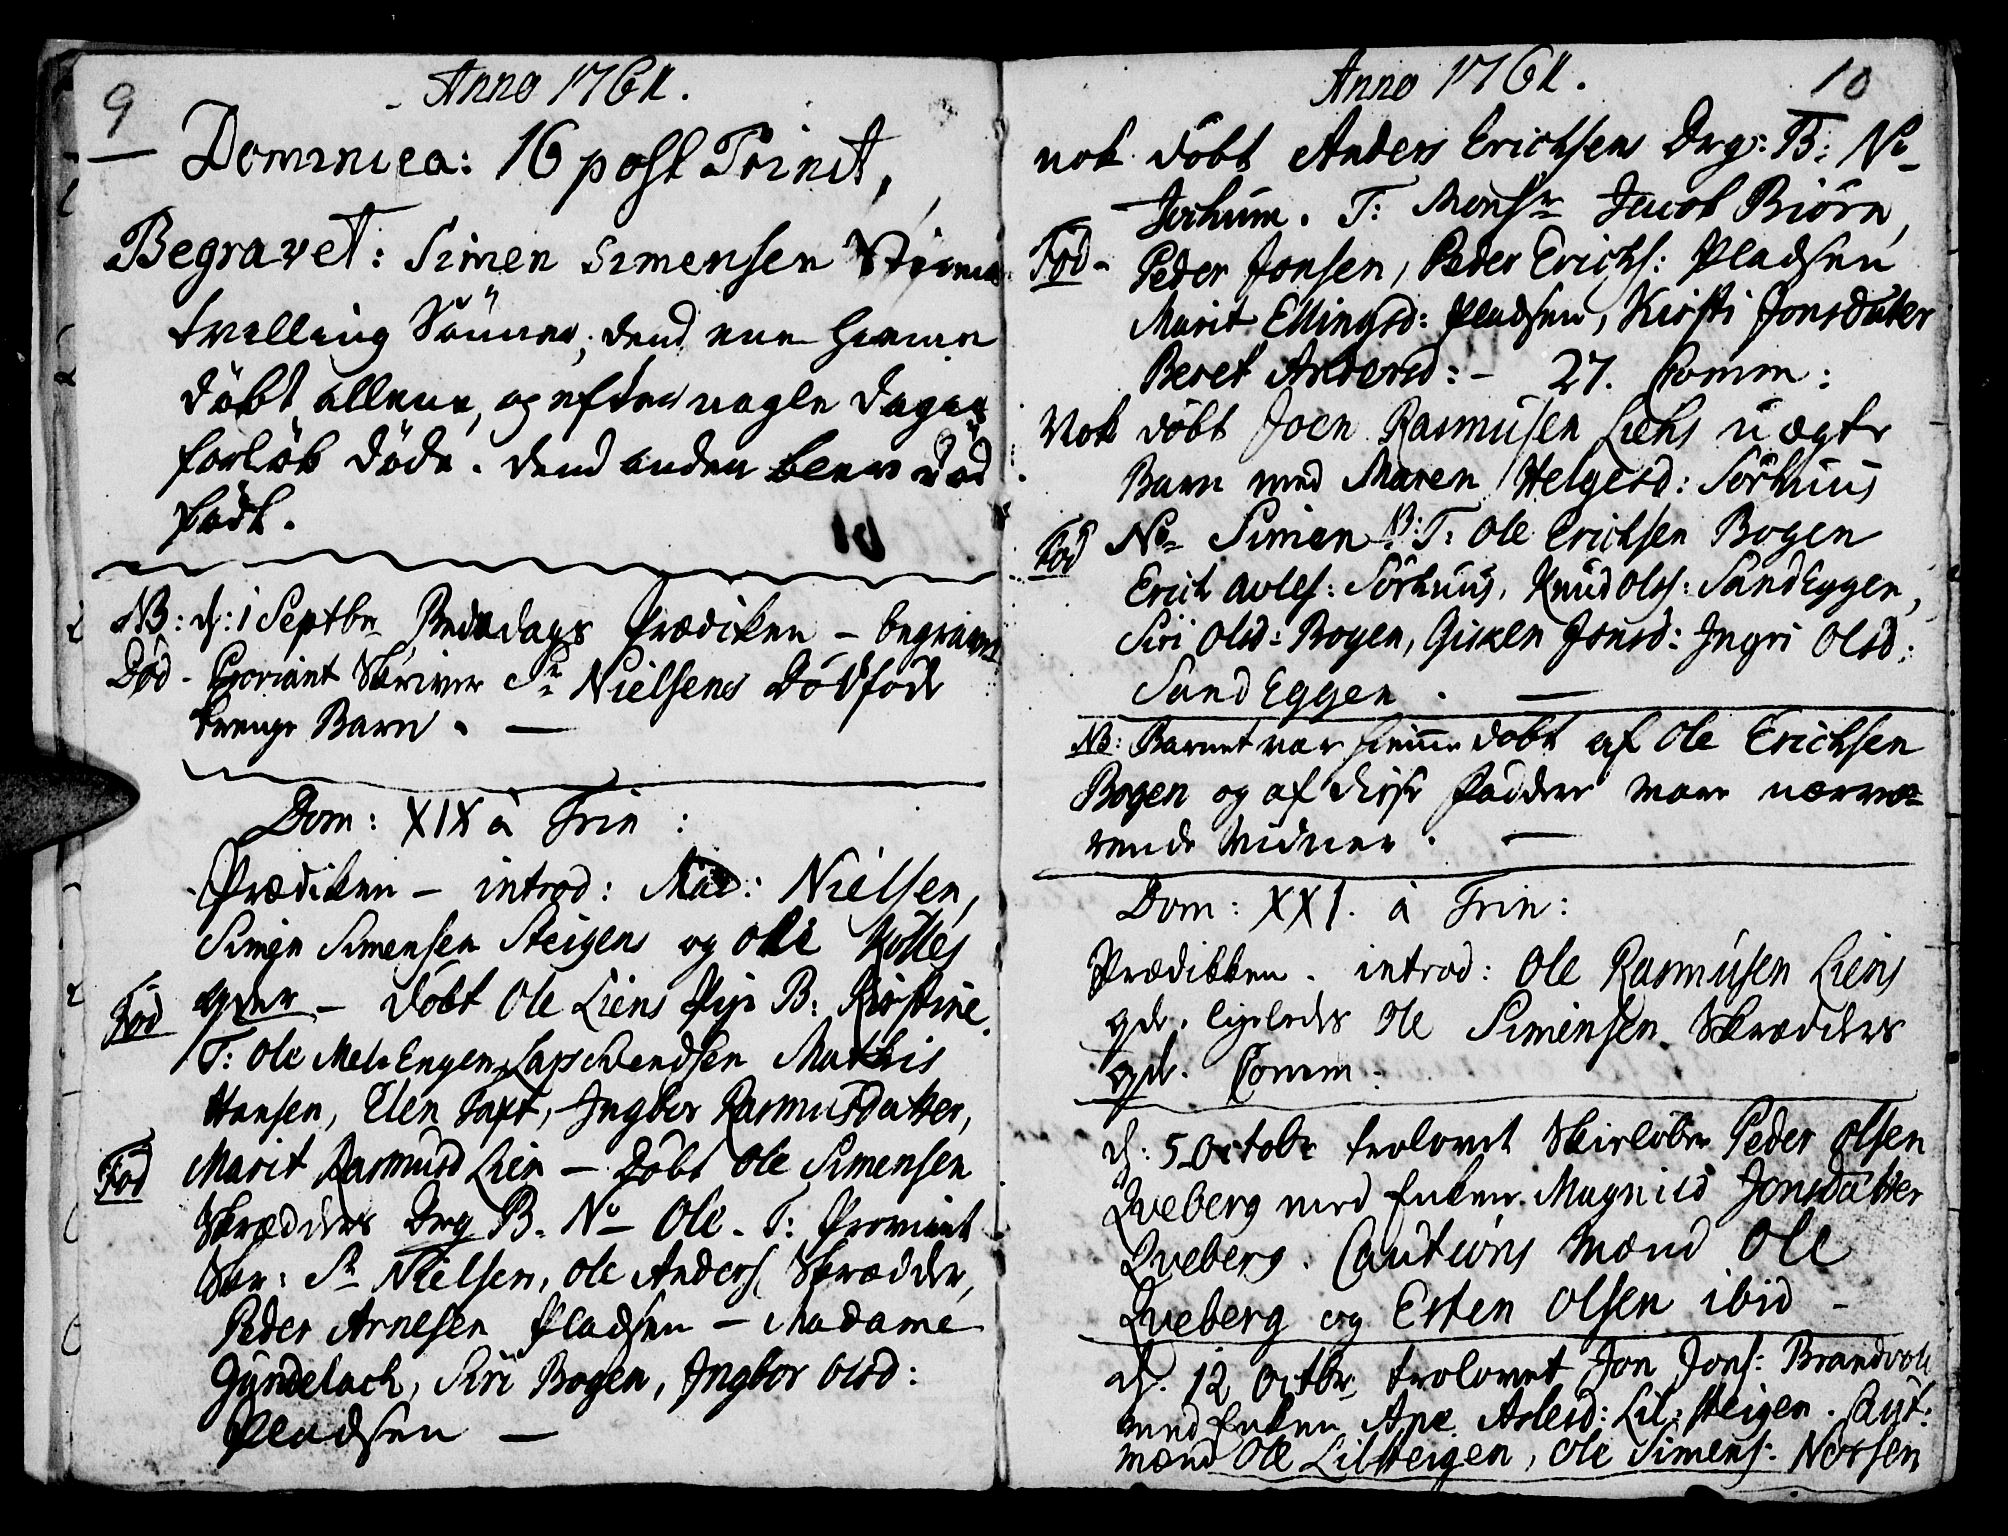 9
Anno 1761.
Dominica: 16 post Trinit,
Begravet: Simen Simensen
tvilling Sönner, dend eene hieme
döbt allene, og efter nogle dages
forlöb döde. dend anden blev död
födt.
NB: d: 1 Septbr Bededags Prædiken - begravet
Död - Proviant Skriver Sr Nielsens Dödföde
drenge Barn. —
Dom: XIX à Trin:
Prædiken - introd: Mad: Nielsen,
Simen Simensen Steigens og Ole
qder - döbt Ole Liens Pige B: Kirstine.
Föd
T: Ole Mel-Engen, Lars Svendsen Mathis
Hansen, Elen Taxt, Ingbor Rasmusdatter,
Föd
Marit Rasmusd Lien - Döbt Ole Simensen
Skrædders Drg B. No Ole. T: Proviant
Skr: Sr Nielsen, Ole Anders. Skrædder,
Peder Arnesen Pladsen - Madame
Gyndelach, Siri Bogen, Ingbor Olsd:
Pladsen —
Anno 1761.
10
nok döbt Anders Erichsens Drg: B: No
Jochum. T: Monsr Jacob Biörn,
Föd - Peder Jonsen, Peder Erichs: Pladsen
Marit Ellingsd: Pladsen, Kirsti Jonsdatter
Beret Andersd: - 27. Comm:
Nok döbt Joen Rasmusen Liens uægte
Barn med Maren Helgesd: Sörhuus
Föd
No Simen B: T: Ole Erichsen Bogen
Erich Avles: Sörhuus, Knud Ols: SandEggen,
Siri Olsd: Bogen, Gisken Jonsd: Ingri Olsd:
SandEggen. —
NB: Barnet var hiemme döbt af Ole Erichsen
Bogen og af disse Fadder vare nærvæ-
rende Vidner. —
Dom: XXI. à Trin:
Prædikken. introd: Ole Rasmusen Liens
qde. ligeledes Ole Simensen Skrædders
qde. Comm.
d: 5 Octobr trolovet Skirlöber Peder Olsen
Qveberg med Enken Magnild Jonsdatter
Qveberg. Cautions Mænd Ole
Qveberg og Esten Olsen ibid -
d. 12 Octbr trolovet Jon Jons: Brandvoll
med Enken Ane Aslesd: Lil: Steigen. Caut:
mænd Ole LilSteigen, Ole Simens: Norsen